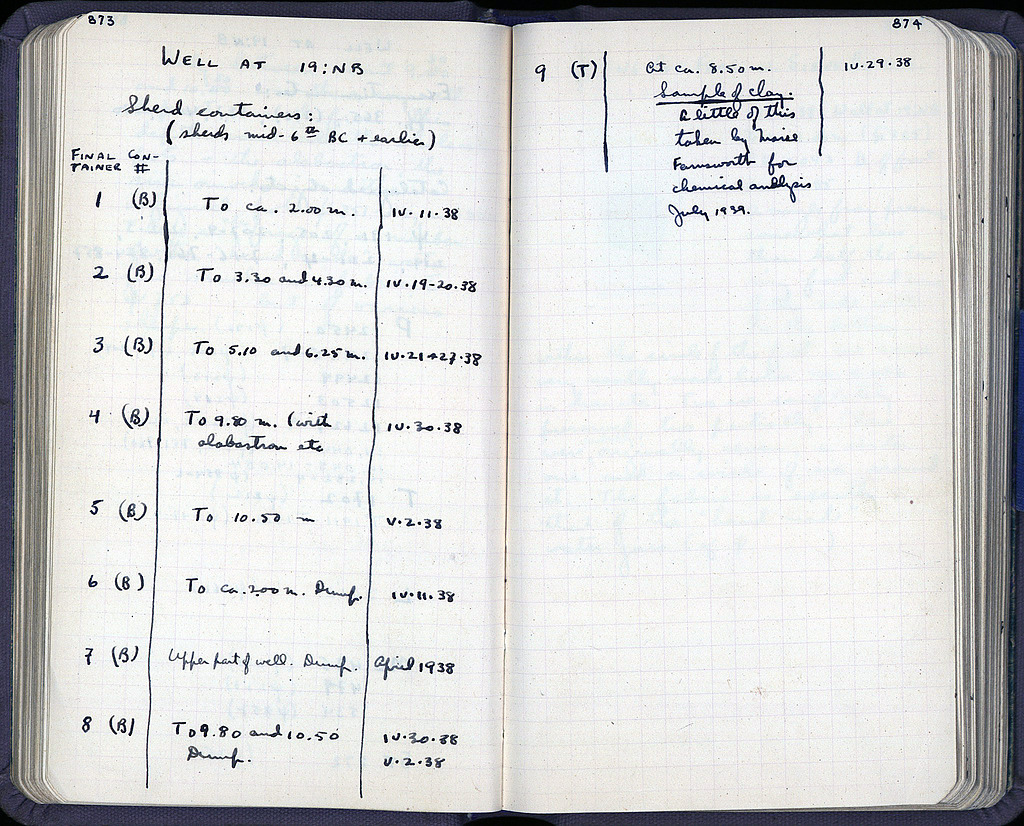 873
WELL AT 19:NB
Sherd containers:
(sherds mid-6th BC + earlier)
FINAL CON-
TAINER #
1 (B) To ca. 2.00 m. IV.11.38
2 (B) To 3.30 and 4.30 m. IV.19-20.38
3 (B) To 5.10 and 6.25 m. IV.21+27.38
4 (B) To 9.80 m. (with IV.30.38
alabastron etc
5 (B) To 10.50 m V.2.38
6 (B) To ca. 2.00 m. Dump. IV.11.38
7 (B) Upper part of well. Dump. April 1938
8 (B) To 9.80 and 10.50 IV.30.38
Dump. V.2.38
874
9 (T) At ca. 8.50 m. IV.29.38
Sample of clay.
A little of this
taken by Marie
Farnsworth for
chemical analysis
July 1939.